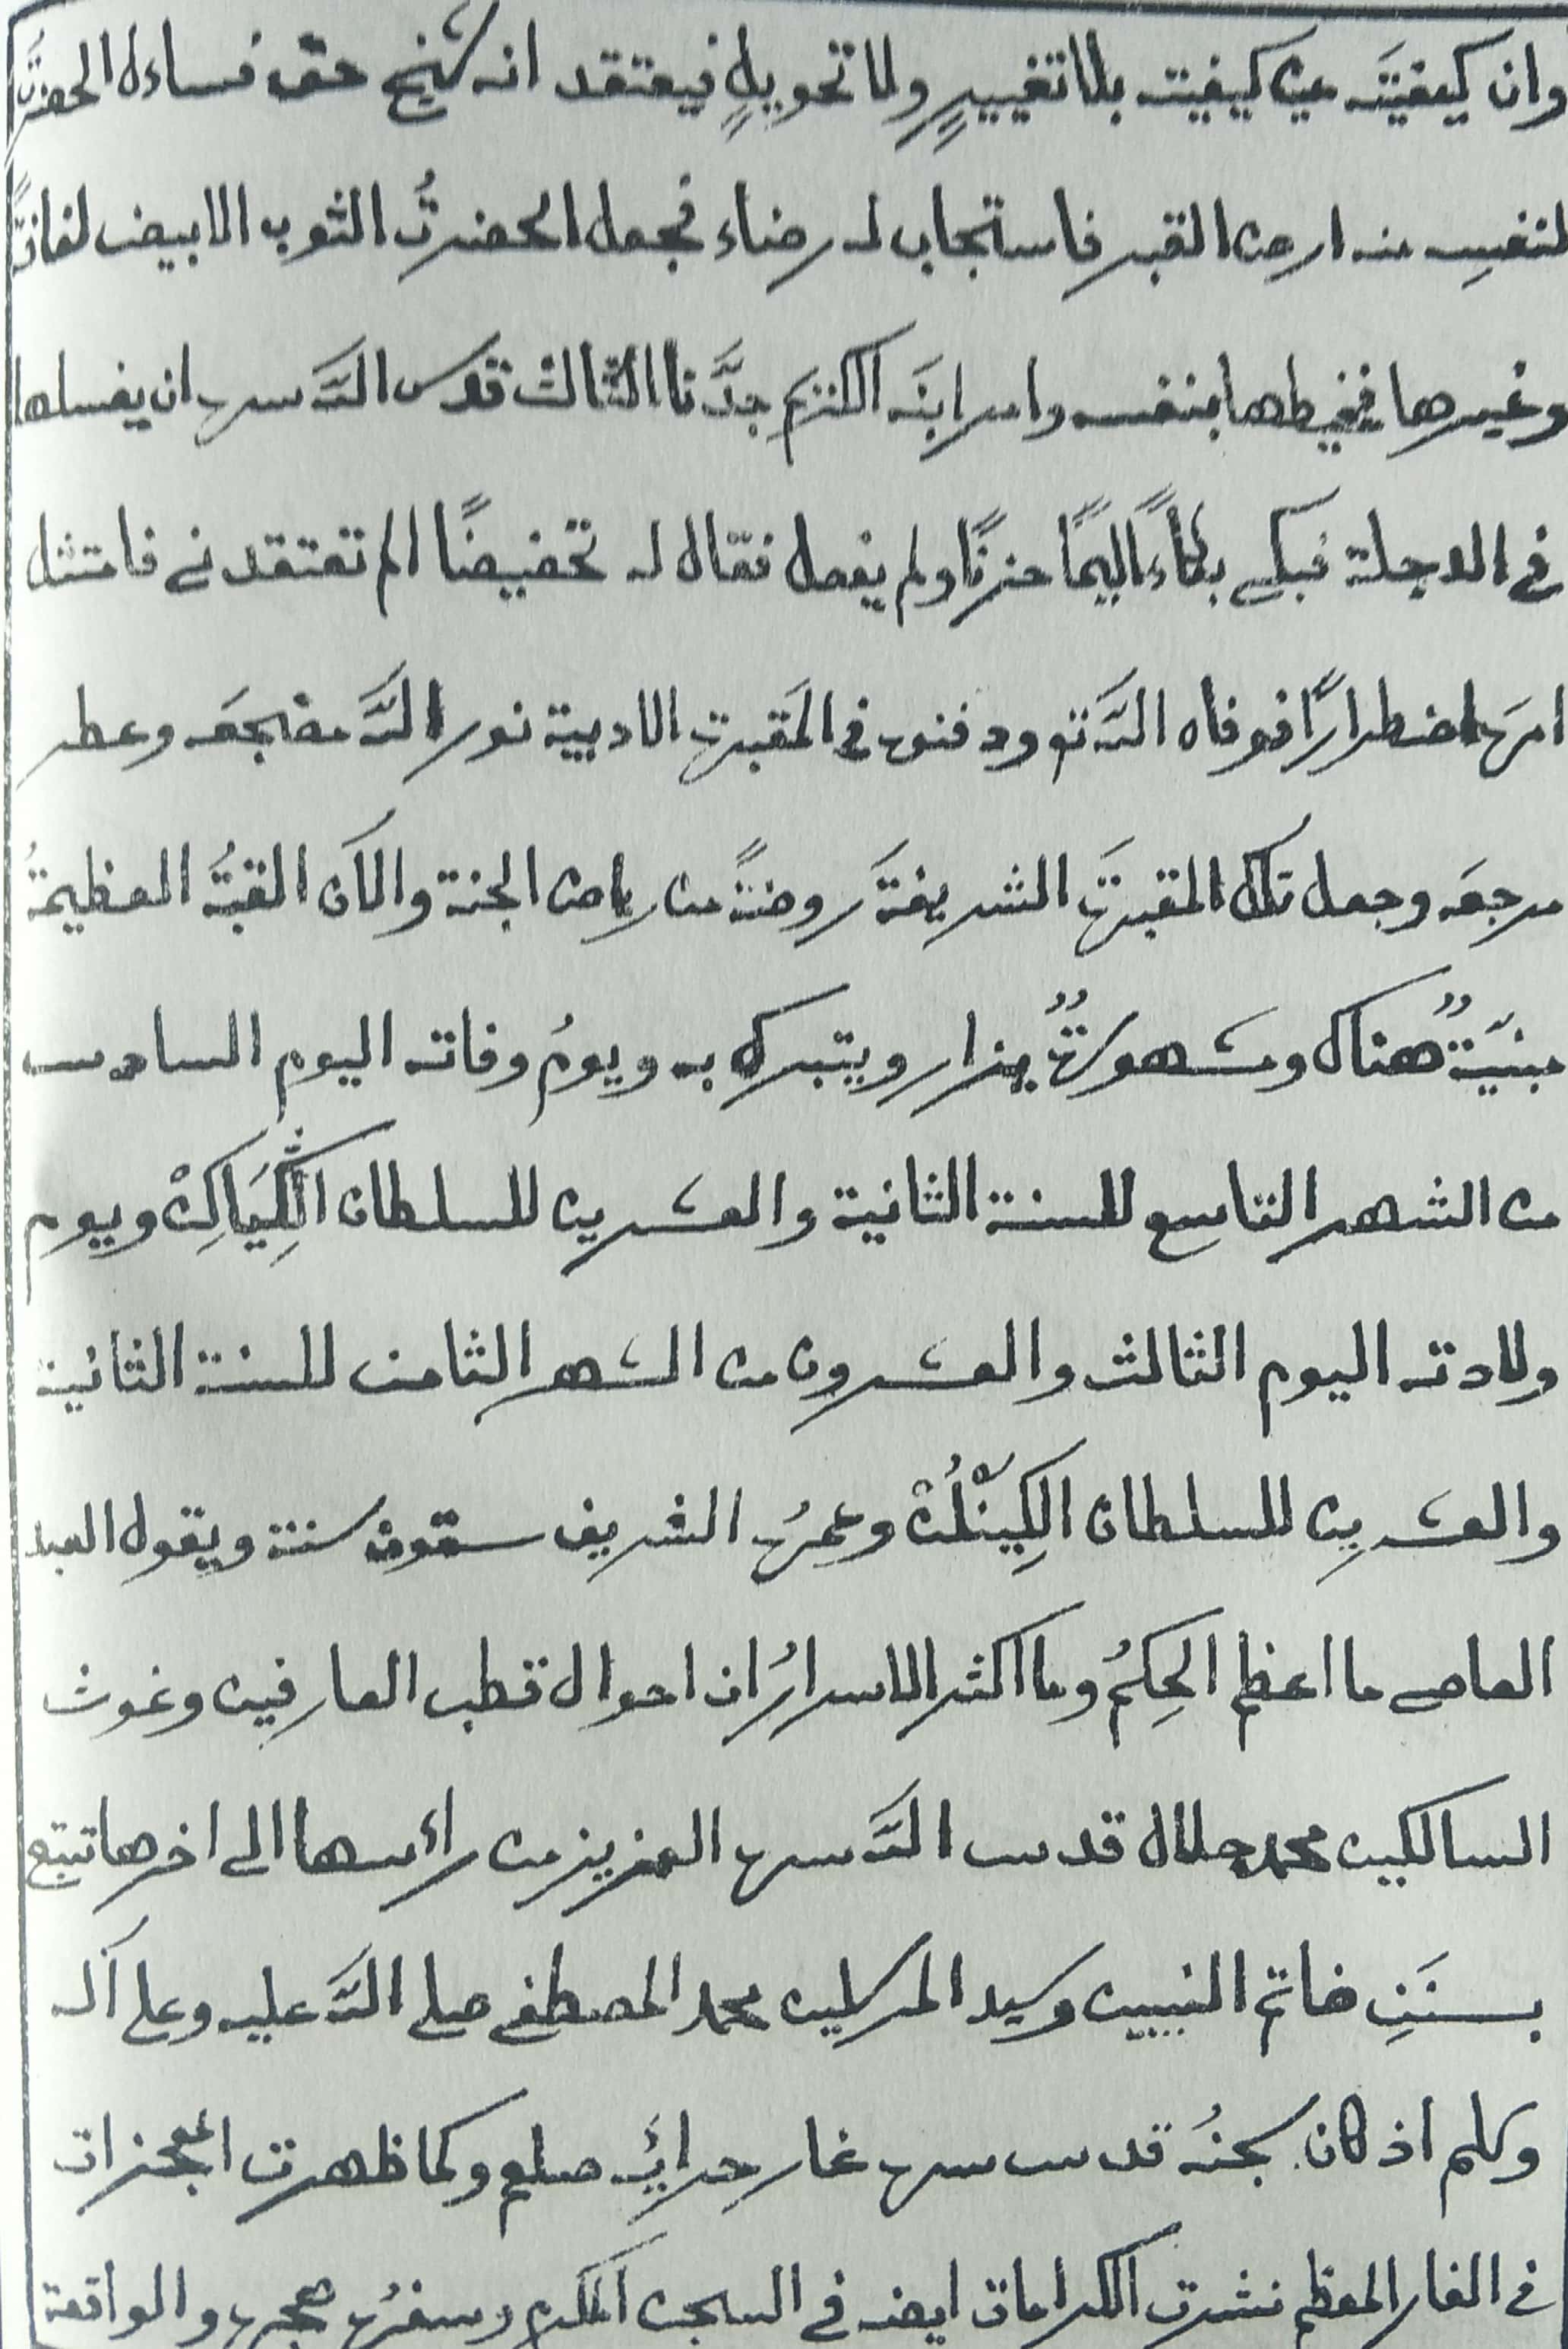 وان كيفيتَه عين كيفيته بلا تغييرٍ ولا تحويلٍ فيعتقد انه شيخ حق فساءل الحضرتُ
لنفسِه منه ارض القبر فاستجاب له رضاء فجعل الحضرتُ الثوب الابيض لفافةً
وغيرها فيخيطها بنفسه وامر ابنَه الكريم جدَّنا الثالث قدس اللّه سره ان يغسلها
في الدجلة فبكى بكاءً اليمًا حزنًا ولم يفعل فقال له تحضيضًا الم تعتقدني فامتثل
امرَه اضطرارًا فوفاه اللّه تع ودفنوه في المَقبرة الادبية نور اللّه مضجعَه وعطر
مرجعَه وجعل تلك المقبرةَ الشريفةَ روضةً من رياض الجنة والآن القبةُ العظيمةُ
مبنيّةٌ هناك ومشهورةٌ يزار ويتبرك به ويومُ وفاته اليوم السادس
من الشهر التاسع للسنة الثانية والعشرين للسلطان ويوم
ولادته اليوم الثالث والعشرون من الشهر الثامن للسنة الثانية
والعشرين للسلطان وعمرُه الشريف ستون سنة ويقول العبد
العاصى ما اعظم الحِكمُ وما اكثر الاسرارُ ان احوال قطب العارفين وغوث
السالكين محمد جلال قدس اللّه سره العزيز من رائسها الى اخرها تتبع
بسنَنِ خاتم النبيين وسيد المرسلين محمد المصطفى صلى اللّه عليه وعلى آله
وسلم اذ كان سجنُه قدس سره غار حرائِه صلعم وكما ظهرت المعجزات
في الغار المعظم نشرت الكرامات ايضه في السجن المكرم وسفرُه هجره والواقعة